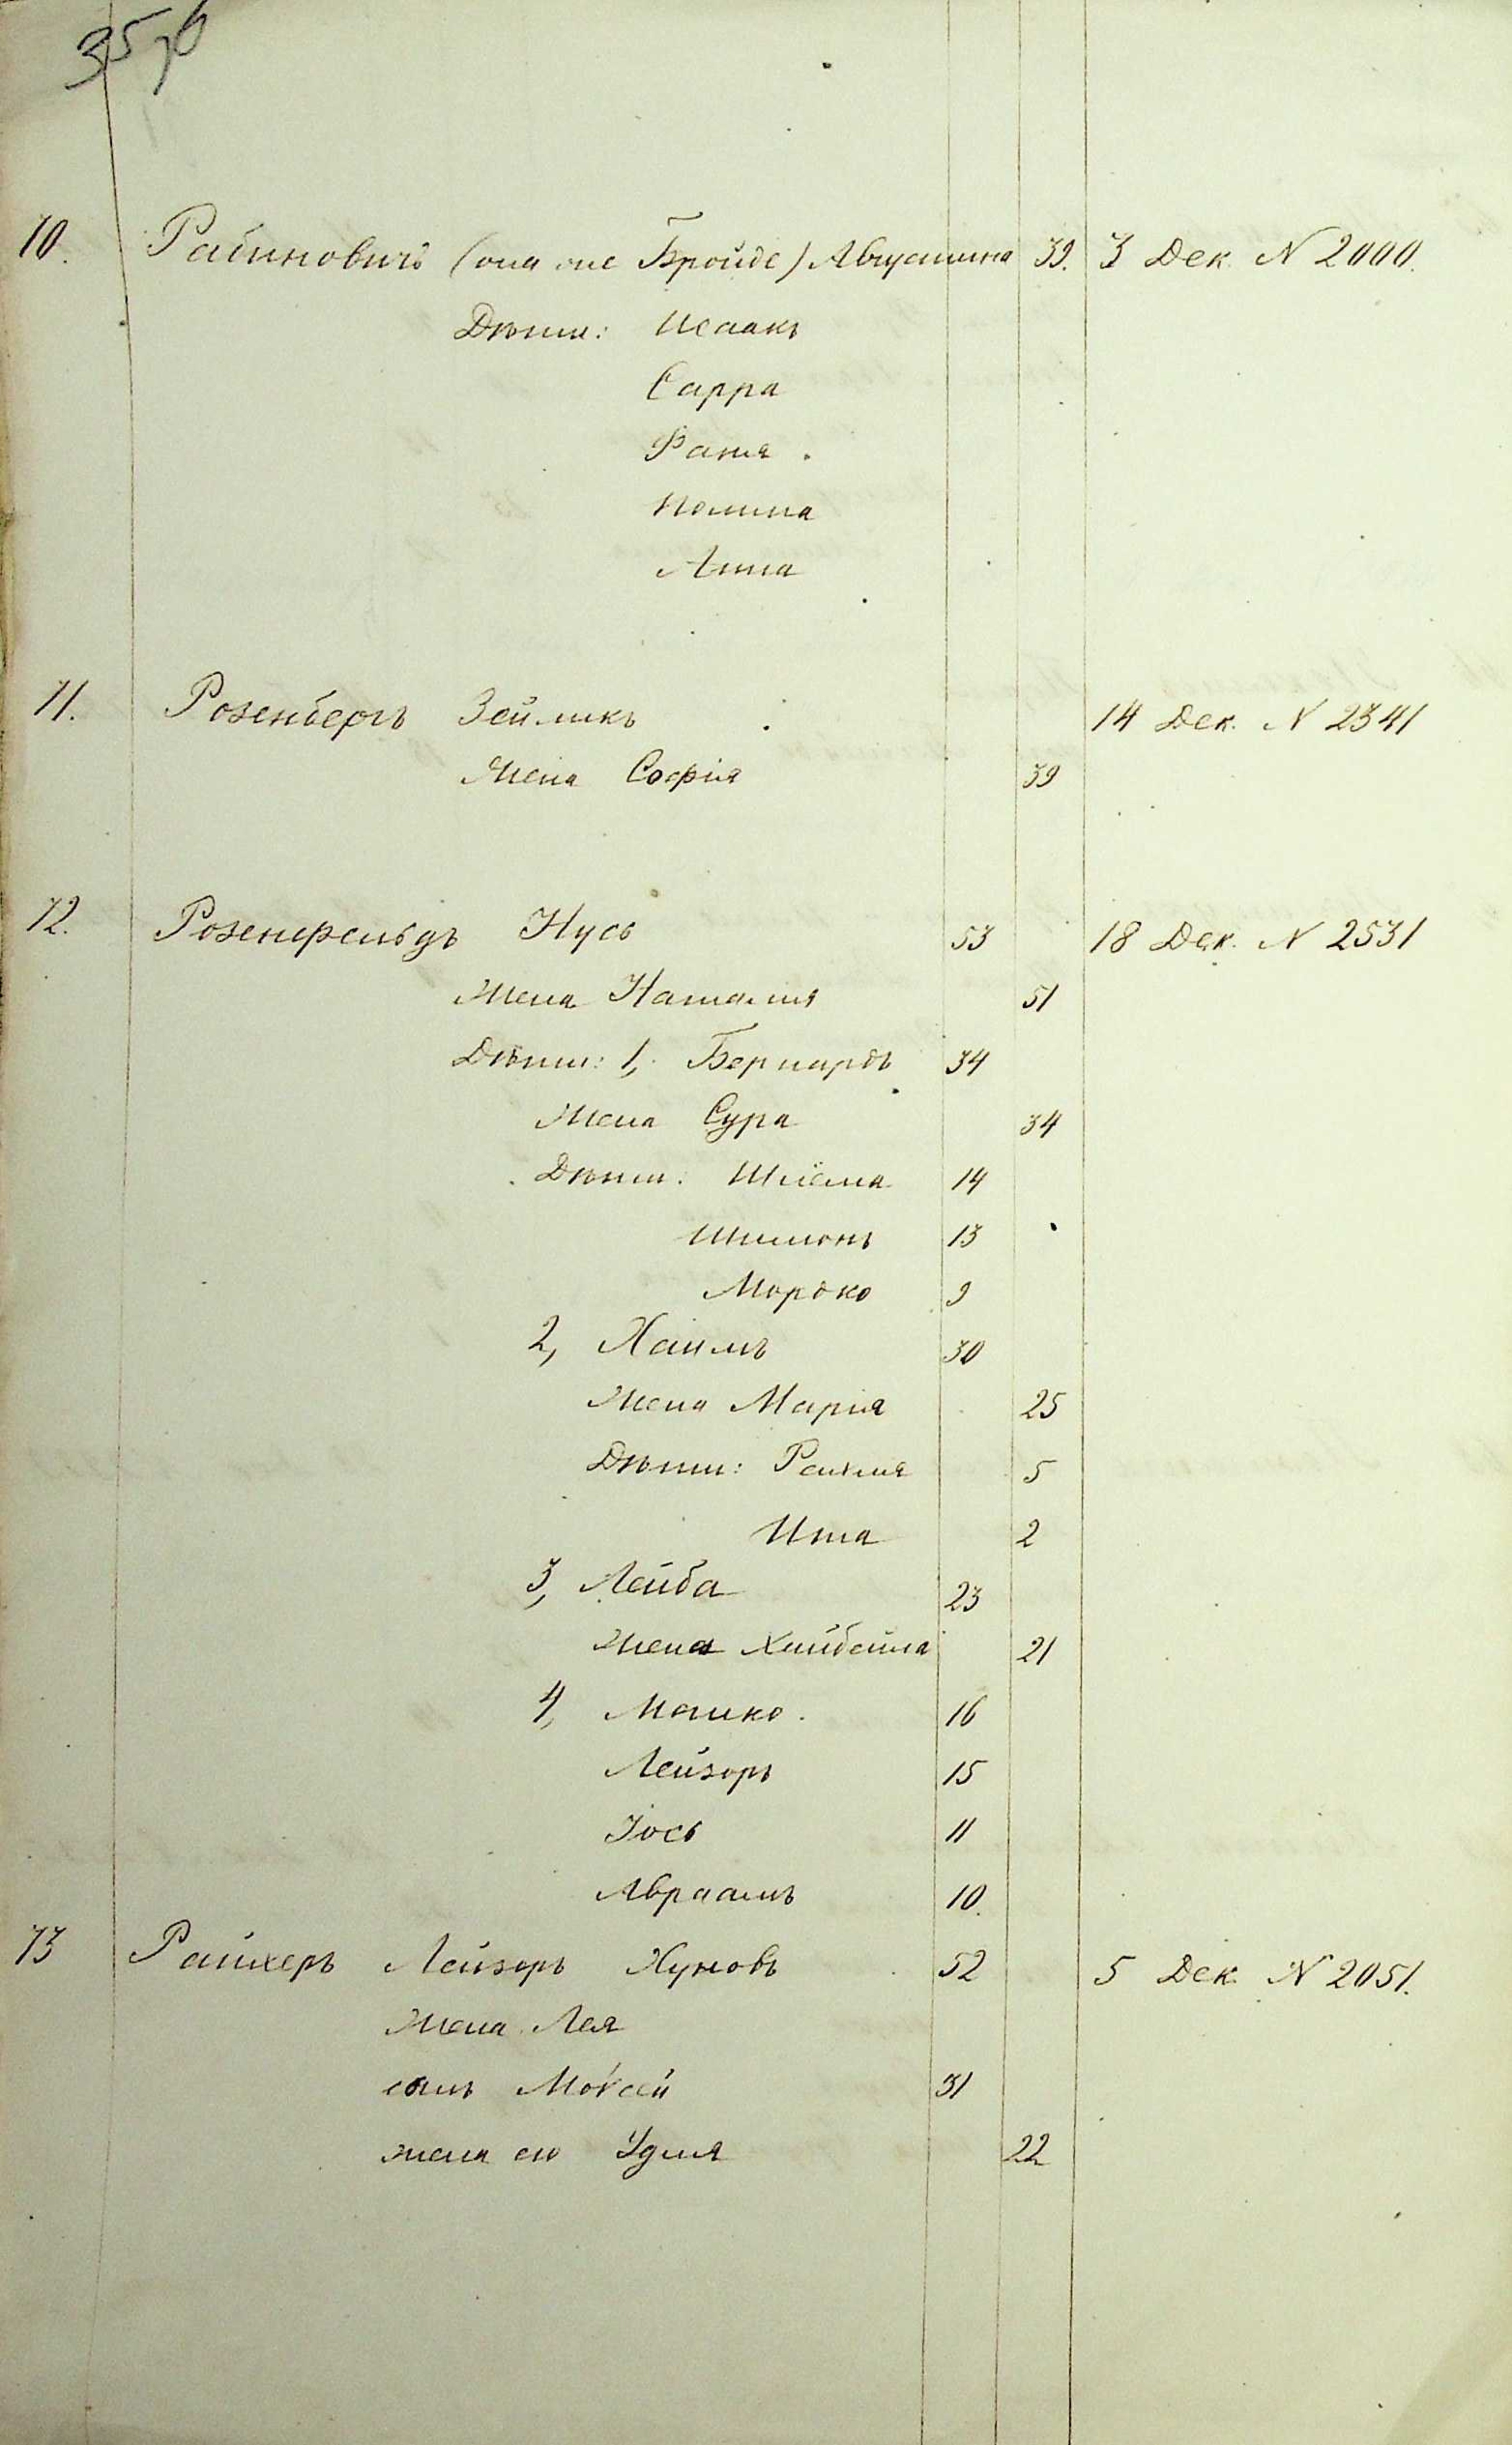 35 об
10. Рабиновичъ (она же Бройде) Августина 39. 3 Дек. N 2000.
Дѣти: Исаакъ
Сарра
Фаня
Полина
Анна
11. Розенбергъ Зейликъ 14 Дек. N 2341
Жена Софія 39
12. Розенфельдъ Нусь 53 18 Дек. N 2531
Жена Наталия 51
Дѣти: 1, Бернардъ 34
Жена Сура 34
Дѣти: Шлема 14
Шимонъ 13
Мордко 9
2, Хаимъ 30
Жена Марія 25
Дѣти: 5
Ита 2
3, Лейба 23
Жена 21
4, Машко. 16
Лейзоръ 15
Іось 11
Авраамъ 10.
13 Райхеръ Лейзоръ Хуновъ 52 5 Дек. N 2051.
Жена Лея
сынъ Мойсей 31
жена его Удля 22